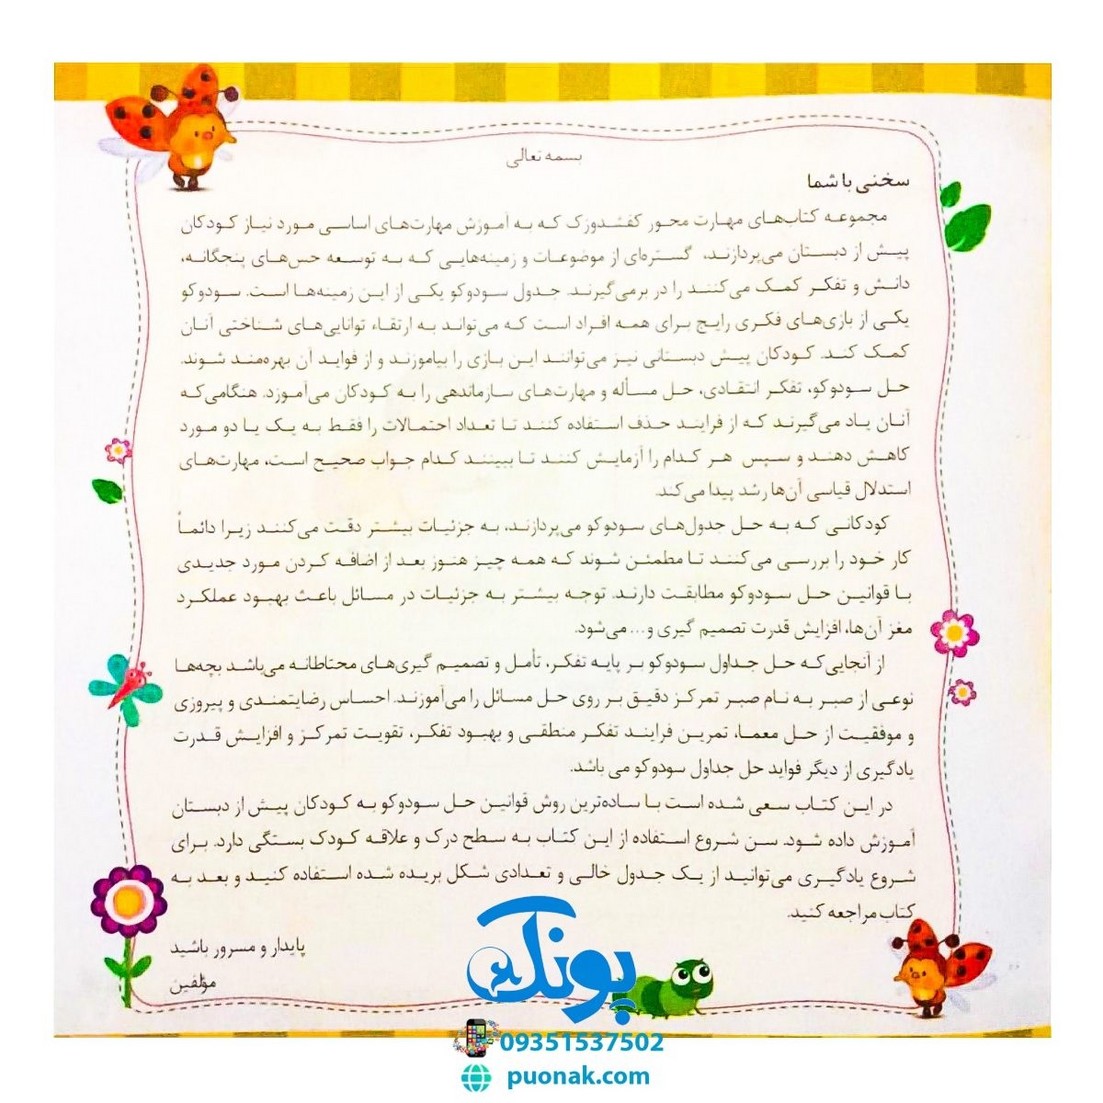 بسمه تعالی
سخنی با شما
مجموعه کتاب‌های مهارت محور کفشدوزک که به آموزش مهارت‌های اساسی مورد نیاز کودکان
پیش از دبستان می‌پردازند، گستره‌ای از موضوعات و زمینه‌هایی که به توسعه حس‌های پنجگانه،
دانش و تفکر کمک می‌کنند را در برمی‌گیرند. جدول سودوکو یکی از این زمینه‌ها است. سودوکو
یکی از بازی‌های فکری رایج برای همه افراد است که می‌تواند به ارتقاء توانایی‌های شناختی آنان
کمک کند. کودکان پیش دبستانی نیز می‌توانند این بازی را بیاموزند و از فواید آن بهره‌مند شوند.
حل سودوکو، تفکر انتقادی، حل مسأله و مهارت‌های سازماندهی را به کودکان می‌آموزد. هنگامی‌که
آنان یاد می‌گیرند که از فرایند حذف استفاده کنند تا تعداد احتمالات را فقط به یک یا دو مورد
کاهش دهند و سپس هر کدام را آزمایش کنند تا ببینند کدام جواب صحیح است، مهارت‌های
استدلال قیاسی آن‌ها رشد پیدا می‌کند.
کودکانی که به حل جدول‌های سودوکو می‌پردازند، به جزئیات بیشتر دقت می‌کنند زیرا دائماً
کار خود را بررسی می‌کنند تا مطمئن شوند که همه چیز هنوز بعد از اضافه کردن مورد جدیدی
با قوانین حل سودوکو مطابقت دارند. توجه بیشتر به جزئیات در مسائل باعث بهبود عملکرد
مغز آن‌ها، افزایش قدرت تصمیم گیری و... می‌شود.
از آنجایی‌که حل جداول سودوکو بر پایه تفکر، تأمل و تصمیم گیری‌های محتاطانه می‌باشد بچه‌ها
نوعی از صبر به نام صبر تمرکز دقیق بر روی حل مسائل را می‌آموزند. احساس رضایتمندی و پیروزی
و موفقیت از حل معما، تمرین فرایند تفکر منطقی و بهبود تفکر، تقویت تمرکز و افزایش قدرت
یادگیری از دیگر فواید حل جداول سودوکو می باشد.
در این کتاب سعی شده است با ساده‌ترین روش قوانین حل سودوکو به کودکان پیش از دبستان
آموزش داده شود. سن شروع استفاده از این کتاب به سطح درک و علاقه کودک بستگی دارد. برای
شروع یادگیری می‌توانید از یک جدول خالی و تعدادی شکل بریده شده استفاده کنید و بعد به
کتاب مراجعه کنید.
پایدار و مسرور باشید
مؤلفین
پونک
09351537502
puonak.com